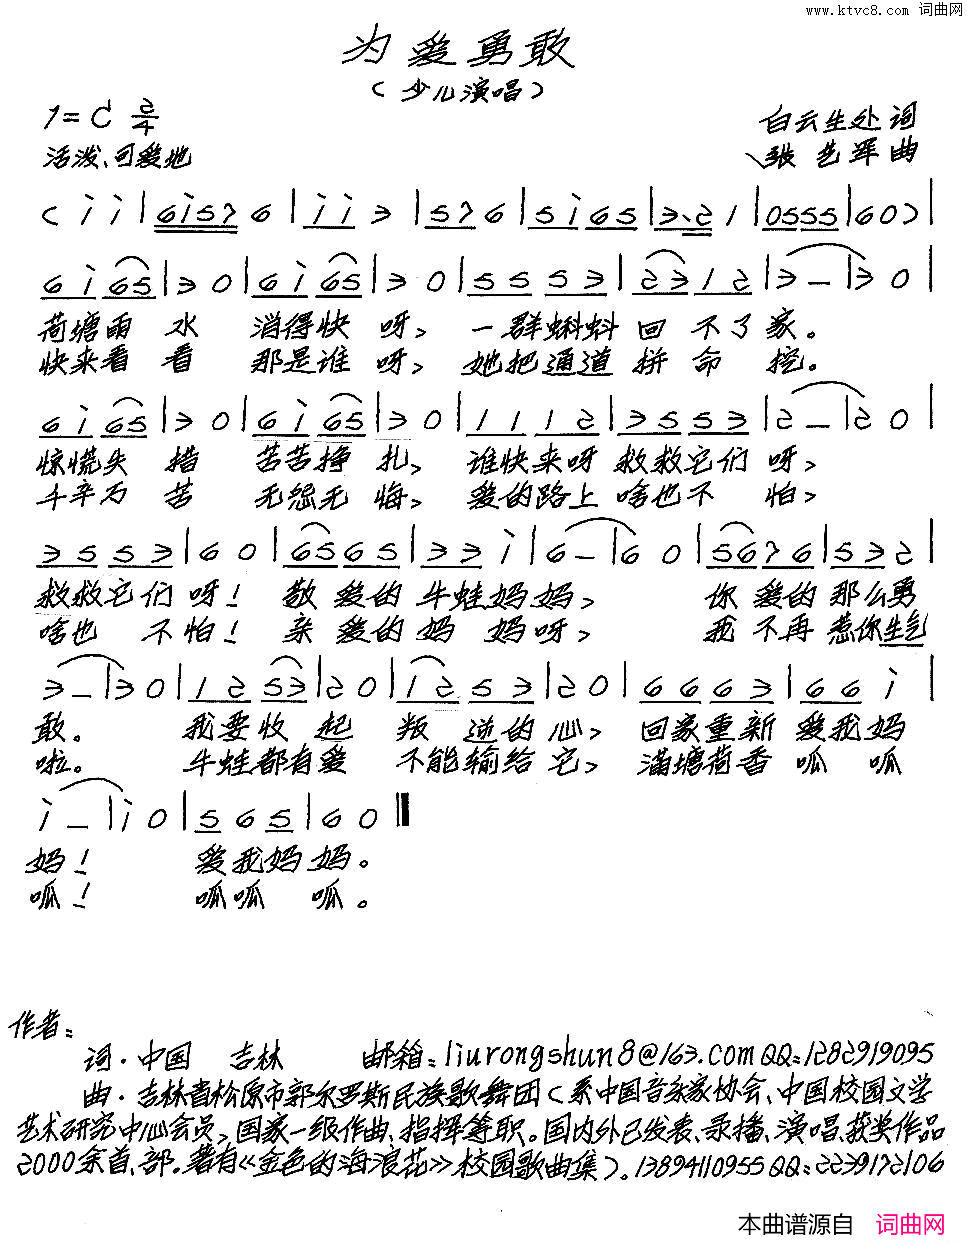 www.ktvc8.com 词曲网
为爱勇敢
(少儿演唱)
1=C 2/4
白云生处 词
活泼、可爱地
张艺军 曲
( i i | 6i57 6 | i i 3 | 5 7 6 | 5 i 6 5 | 3. 2 1 | 0555 | 6 0 ) |
6 i 65 | 3 0 | 6 i 65 | 3 0 | 5 5 5 3 | 2 3 1 2 | 3 – | 3 0 |
荷塘雨 水 消得快 呀, 一群蝌蚪 回 不了家。
快来看 看 那是谁 呀, 她把通道 拼 命 挖。
6 i 65 | 3 0 | 6 i 65 | 3 0 | 1 1 1 2 | 3 5 5 3 | 2 – | 2 0 |
惊慌失 措 苦苦挣 扎, 谁快来呀 救救它们 呀,
千辛万 苦 无怨无 悔, 爱的路上 啥也不 怕,
3 5 5 3 | 6 0 | 6 5 6 5 | 3 3 i | 6 – | 6 0 | 5 6 7 6 | 5 3 2 |
救救它们 呀! 敬 爱的 牛蛙妈妈, 你 爱的 那么勇
啥也 不 怕! 亲 爱的 妈 妈呀, 我 不再 惹你生气
3 – | 3 0 | 1 2 53 | 2 0 | 1 2 5 3 | 2 0 | 6 6 6 3 | 6 6 i |
敢。 我要收 起 叛 逆的 心, 回家重新 爱我妈
啦。 牛蛙都有爱 不能输给 它, 满塘荷香 呱 呱
i – | i 0 | 5 6 5 | 6 0 ‖
妈! 爱我妈妈。
呱! 呱呱 呱。
作者:
词·中国 吉林 邮箱:liurongshun8@163.com QQ:1282919095
曲·吉林省松原市郭尔罗斯民族歌舞团(系中国音乐家协会、中国校园文学
艺术研究中心会员,国家一级作曲、指挥等职。国内外已发表、录播、演唱、获奖作品
2000余首、部。著有《金色的海浪花》校园歌曲集)。13894110955 QQ:2239172106
本曲谱源自 词曲网